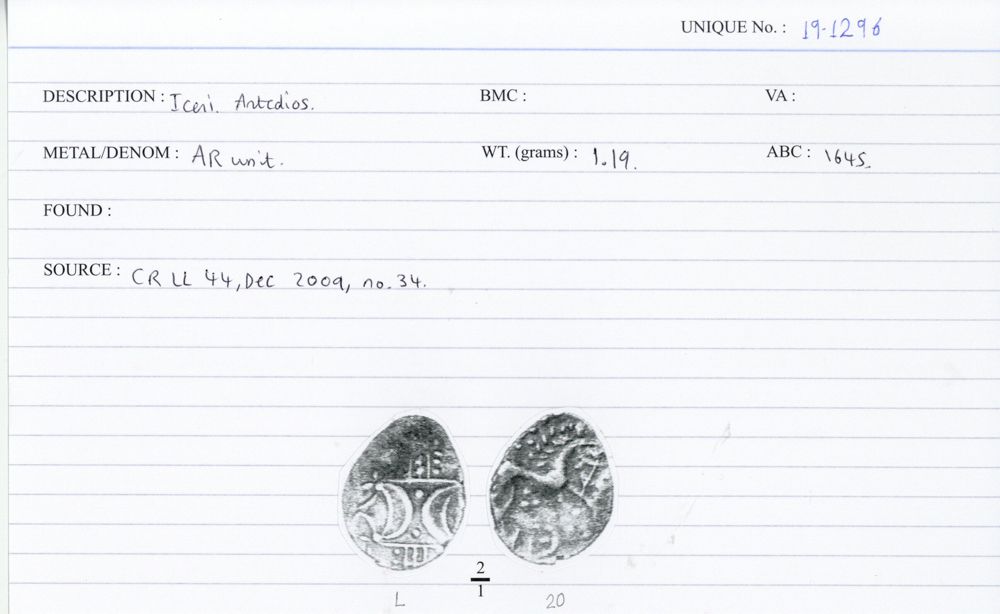 UNIQUE No. : 19-1296
DESCRIPTION : Iceni. Antedios. BMC : VA :
METAL/DENOM : AR unit. WT. (grams) : 1.19. ABC : 1645.
FOUND :
SOURCE : CR LL 44, Dec 2009, no. 34.
2
1
L 20